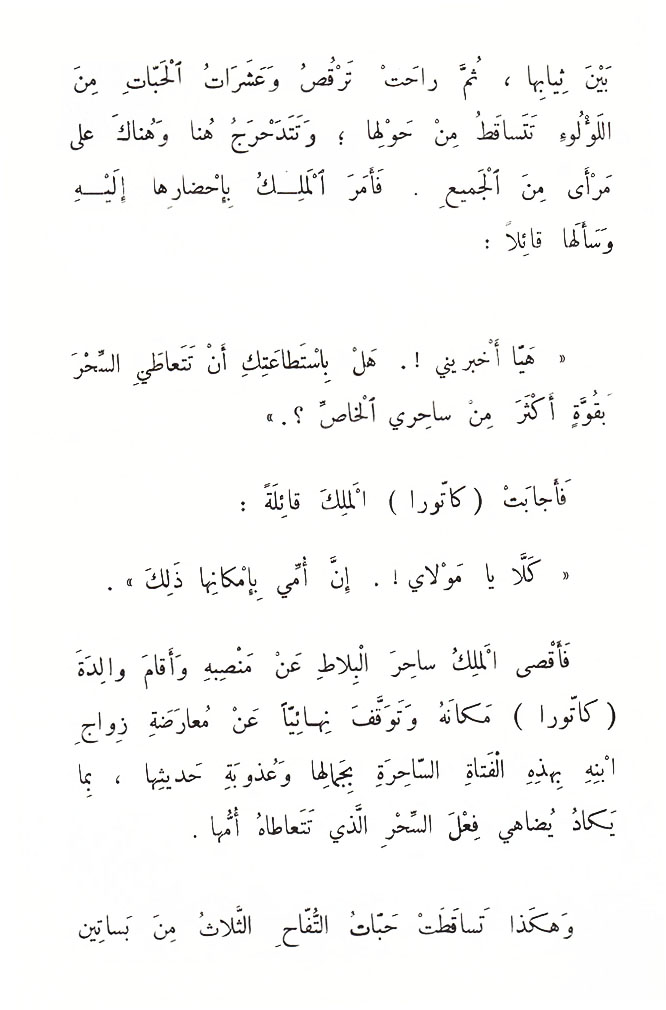 بَيْنَ ثِيابِها ، ثُمَّ راحَتْ تَرْقُصُ وَعَشَرَاتُ ٱلْحَبّاتِ مِنَ
اللَّوْلُوءِ تَتَساقَطُ مِنْ حَوْلِها ؛ وَتَتَدَحْرَجُ هُنا وَهُناكَ على
مَرْأَى مِنَ ٱلْجَميعِ . فَأَمَرَ ٱلْمَلِـــكُ بِإِحْضارِها إِلَيْـــهِ
وَسَأَلَها قائِلاً :
« هَيّا أَخْبريني !. هَلْ بِاسْتَطاعَتِكِ أَنْ تَتَعاطَيِ السِّحْرَ
بَقُوَّةٍ أَكْثَرَ مِنْ ساحِري ٱلْخاصِّ ؟. »
فَأَجابَتْ (كاتّورا ) الْمَلِكَ قائِلَةً :
« كَلَّا يا مَوْلاي ! . إِنَّ أُمِّي بِإِمْكانِها ذَلِكَ » .
فَأَقْصى الْمَلِكُ ساحِرَ الْبِلاطِ عَنْ مَنْصِبِهِ وَأَقامَ والِدَةَ
(كاتّورا ) مَكانَهُ وَتَوَقَّفَ نِهائِيّاً عَنْ مُعارَضَةِ زِواجِ
ابْنِهِ بِهذِهِ الْفَتاةِ السّاحِرَةِ بِجَمالِها وَعُذوبَةِ حَديثِها ، بِما
يَكادُ يُضاهي فِعْلَ السِّحْرِ الَّذي تَتَعاطاهُ أُمُّها .
وَهكَذا تَساقَطَتْ حَبّاتُ التُّفّاحِ الثَّلاثُ مِنَ بَساتين